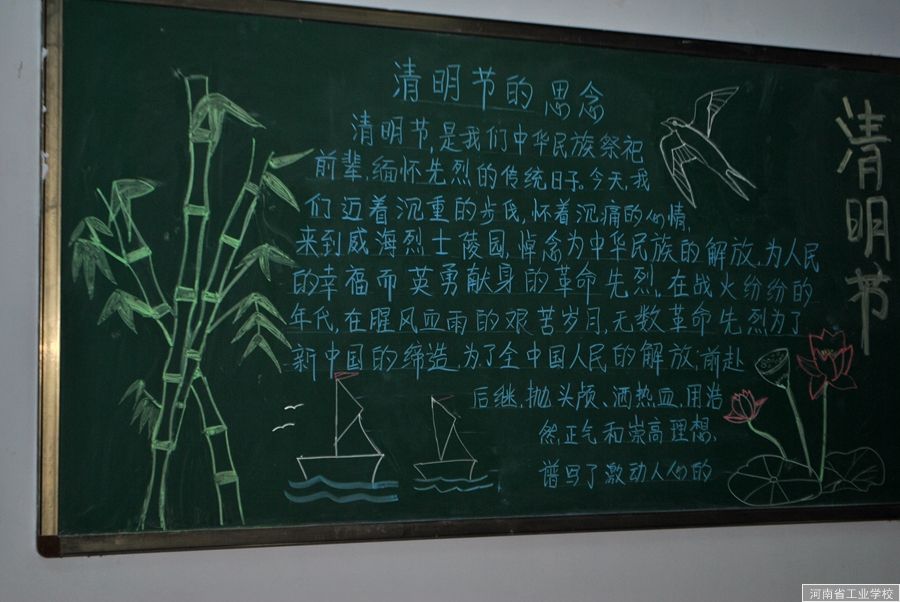 清明节的思念
清明节,是我们中华民族祭祀
前辈,缅怀先烈的传统日子。今天,我
们迈着沉重的步伐,怀着沉痛的心情,
来到威海烈士陵园,悼念为中华民族的解放,为人民
的幸福而英勇献身的革命先烈,在战火纷纷的
年代,在腥风血雨的艰苦岁月,无数革命先烈为了
新中国的缔造,为了全中国人民的解放,前赴
后继,抛头颅、洒热血,用浩
然正气和崇高理想,
谱写了激动人心的
清明节
河南省工业学校